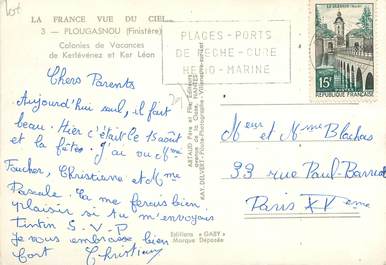 LA FRANCE VUE DU CIEL...
3 - PLOUGASNOU (Finistère)
Colonies de Vacances
de Kerlévénez et Ker Léon
PLAGES - PORTS
DE PECHE - CURE
HELIO - MARINE
LE QUESNOY
15F
REPUBLIQUE FRANÇAISE
Chers Parents
Aujourd'hui seul, il fait
beau. Hier c'était le 15 août
et la fête. J'ai vu Mme
Faucher, Christiane et Mme
Pascale. Ça me ferais bien
plaisir si tu m'envoyais
Tintin S.V.P
je vous embrasse bien
fort Christian
ARTAUD Père et Fils, Éditeurs
NANTES
RAY DELVERT - Pilote-Photographe - Villeneuve-sur-Lot
Editions "GABY"
Marque Déposée
Meur et Mme Blochas
33 rue Paul-Barruel
Paris XVeme